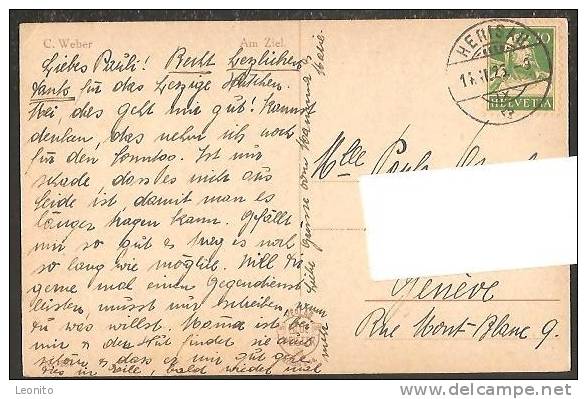 C. Weber
Am Ziel
Liebes Pauli! Recht herzlichen
Dank für das herzige
Hei, das geht mir gut! Kannst
denken, das nehm ich noch
für den Sonntag. Ist nur
schade, dass es nicht aus
Seide ist, damit man es
länger tragen kann. Gefällt
mir so gut & trag es noch
so lang wie möglich. Will Dir
gerne mal einen Gegendienst
leisten, musst mir schreiben, wenn
du was willst. Mama ist bei
mir & den Hut findet sie auch
schön & dass er mir gut geht.
Dies in Eile, bald wieder mal
mehr
Liebe Grüsse von Mamma &
HERISAU
HELVETIA
10
Mlle
Genève
Rue Mont-Blanc 9.
Leonito
delcampe.net